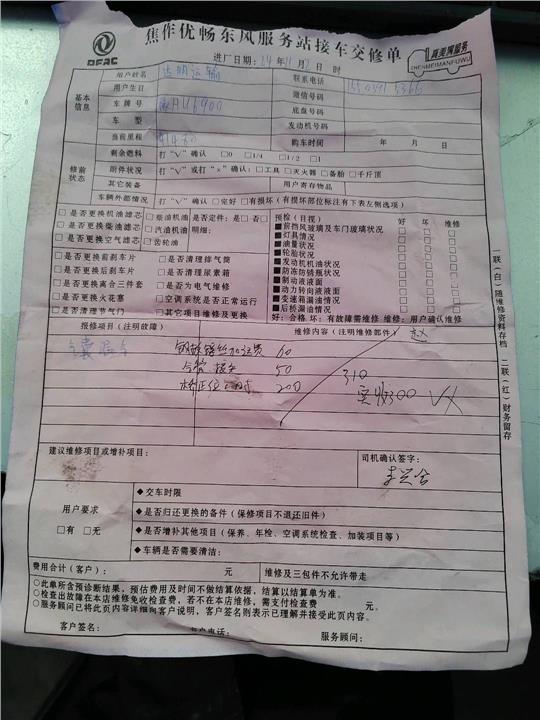 DFAC
焦作优畅东风服务站接车交修单
真美满服务
ZHENMEIMANFUWU
进厂日期：24年11月2日 时
基本信息
用户姓名 达明运输 联系电话
用户生日 微信号码
车牌号 底盘号码
车型 发动机号码
当前里程 购车时间 年 月 日
修前状态
剩余燃料 打"√"确认 □0 □1/4 □1/2 □1
附件状况 打"√"或打"×"确认：□工具 □灭火器 □备胎 □千斤顶
其它装备 用户寄存物品
车辆外部情况 打"√"确认 □完好 □有损坏（有损坏部位标注有下表左侧选项）
□是否更换机油滤芯 □柴油机油 是否定件：□是 □否
□是否更换柴油滤芯 □汽油机油 明细：
□是否更换空气滤芯 □齿轮油
□是否更换前刹车片 □是否清理排气筒
□是否更换后刹车片 □是否清理尿素箱
□是否更换离合三件套 □是否为电气维修
□是否更换火花塞 □空调系统是否正常运行
□是否清理节气门 □其它项目维修及更换
预检（目视） 好 坏 维修
■前挡风玻璃及车门玻璃状况
■灯具情况
■油量状况
■轮胎状况
■发动机机油状况
■防冻防锈瓶状况
■制动液液面
■动力转向液液面
■变速箱漏油情况
■后桥漏油情况
好：合格 坏：有故障需维修 维修：用户确认维修
报修项目（注明故障） 维修内容（注明维修部件）
60
50
200
310
实收300
建议维修项目或增补项目： 司机确认签字：
用户要求
□有 □无
◆交车时限
◆是否归还更换的备件（保修项目不退还旧件）
◆是否增补其他项目（保养、年检、空调系统检查、加装项目等）
◆车辆是否需要清洁：
费用合计（客户）： 元 维修及三包件不允许带走
○此单所含预诊断结果，预估费用及时间不做结算依据，结算以结算单为准。
○检查出故障在本店维修免收检查费，若不在本店维修，需支付检查费 元。
○服务顾问已将此页内容详细向客户说明，客户签名则表示已理解并接受此页内容。
客户签名： 客户电话： 服务顾问：
一联（白）随维修资料存档 二联（红）财务留存